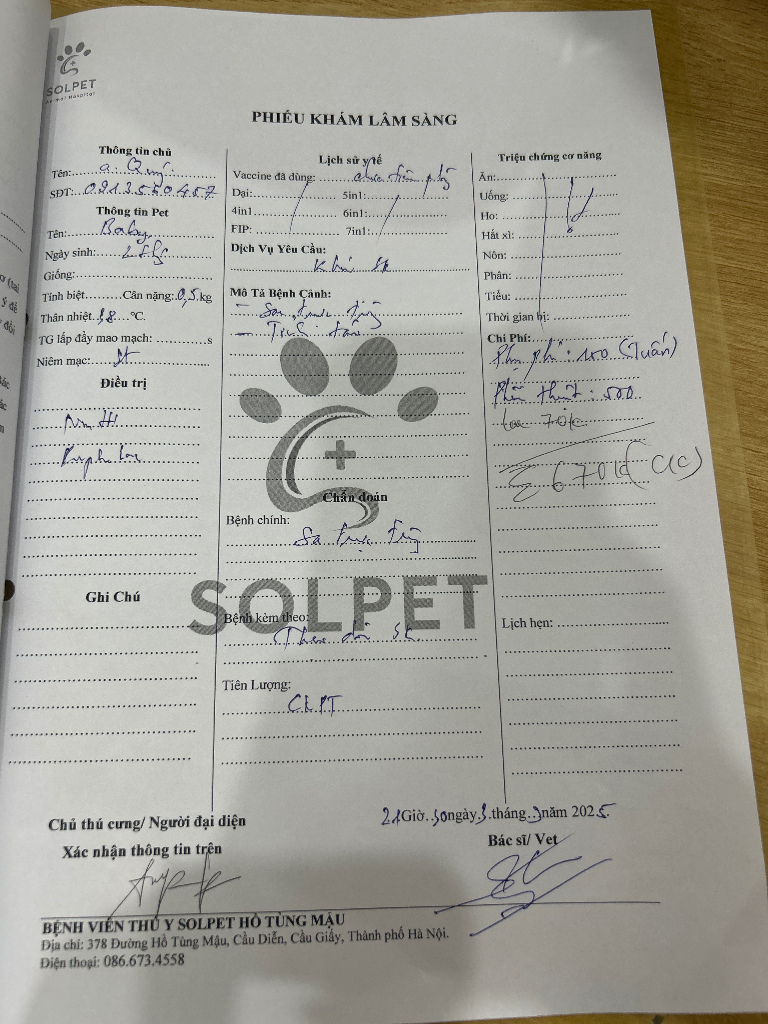 SOLPET
Animal Hospital
PHIẾU KHÁM LÂM SÀNG
Thông tin chủ
Tên: a. Quý
SĐT: 0913550457
Thông tin Pet
Tên: Baby
Ngày sinh:
Giống:
Tính biệt Cân nặng: 0,5 kg
Thân nhiệt 38 °C.
TG lấp đầy mao mạch: s
Niêm mạc:
Điều trị
Ghi Chú
Lịch sử y tế
Vaccine đã dùng: chưa tiêm phòng
Dại: 5in1:
4in1 6in1:
FIP: 7in1:
Dịch Vụ Yêu Cầu:
Khám sk
Mô Tả Bệnh Cảnh:
- Sa trực tràng
-
Chẩn đoán
Bệnh chính:
Sa trực tràng
SOLPET
Bệnh kèm theo:
Theo dõi sk
Tiên Lượng:
CLPT
Triệu chứng cơ năng
Ăn:
Uống:
Ho:
Hắt xì:
Nôn:
Phân:
Tiểu:
Thời gian bị:
Chi Phí:
Phụ phí: 100 (Tuấn)
Phẫu thuật: 500
70k
Σ 670k (CK)
Lịch hẹn:
Chủ thú cưng/ Người đại diện
Xác nhận thông tin trên
21 Giờ 30 ngày 3 tháng 3 năm 2025.
Bác sĩ/ Vet
BỆNH VIỆN THÚ Y SOLPET HỒ TÙNG MẬU
Địa chỉ: 378 Đường Hồ Tùng Mậu, Cầu Diễn, Cầu Giấy, Thành phố Hà Nội.
Điện thoại: 086.673.4558